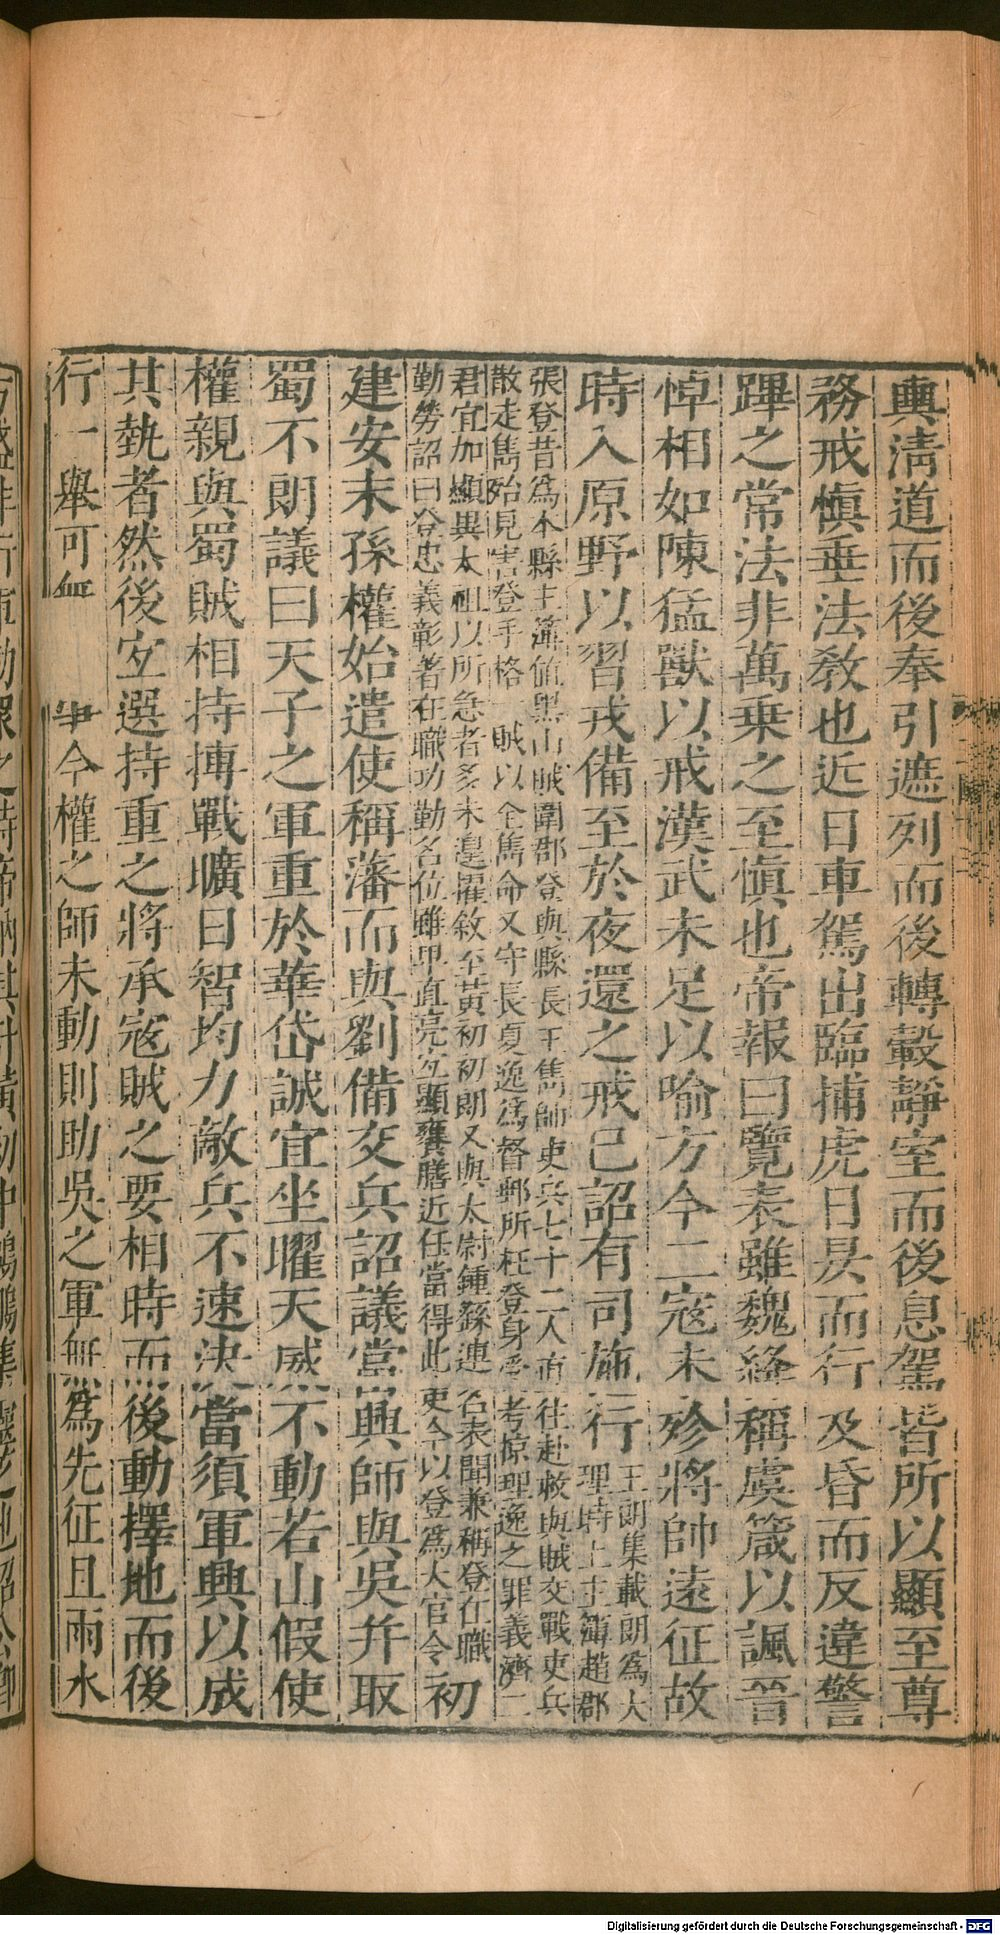 輿清道而後奉引遮列而後轉轂靜室而後息駕皆所以顯至尊
務戒慎垂法敎也近日車駕出臨捕虎日昃而行及昏而反違警
蹕之常法非萬乗之至慎也帝報曰覽表雖魏絳稱虞箴以諷晉
悼相如陳猛獸以戒漢武未足以喻方今二宼未殄將帥遠征故
時入原野以習戎備至於夜還之戒已詔有司施行
王朗集載朗爲大
理時上主簿趙郡
張登昔爲本縣主簿値黒山賊圍郡登與縣長王雋帥吏兵七十二人直往赴救與賊交戰吏兵
散走雋殆見害登手格一賊以全雋命又守長夏逸爲督郵所枉登身受考掠理逸之罪義濟二
君宜加顯異太祖以所急者多未遑擢敘至黃初初朗又與太尉鍾繇連名表聞兼稱登在職
勤勞詔曰登忠義彰著在職功勤名位雖卑直亮宐顯饔膳近任當得此吏今以登爲大官令
初
建安末孫權始遣使稱藩而與劉備交兵詔議當興師與吳并取
蜀不朗議曰天子之軍重於華岱誠宜坐曜天威不動若山假使
權親與蜀賊相持搏戰曠日智均力敵兵不速決當須軍興以成
其埶者然後宐選持重之將承宼賊之要相時而後動擇地而後
行一舉可無 今權之師未動則助吳之軍無爲先征且雨水
Digitalisierung gefördert durch die Deutsche Forschungsgemeinschaft - DFG